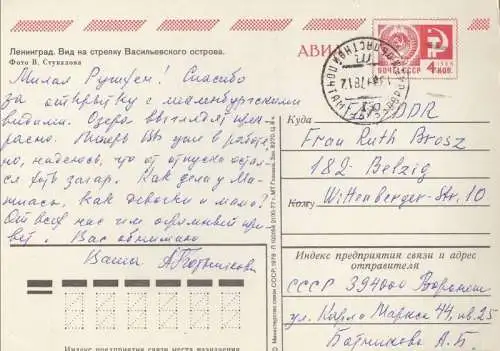 Ленинград. Вид на стрелку Васильевского острова.
Фото В. Стукалова
Милая Рутхен! Спасибо
за открытку с мекленбургскими
видами. Озера выглядят прек-
расно. Теперь Вы уже в работе
но, надеюсь, что от отпуска остал-
ся хоть загар. Как дела у Ма-
тиаса, как девочки и мама?
От всех нас им огромный при-
вет. Вас обнимаю
Ваша А. Ботникова
АВИА
ПОЧТА СССР 4 КОП.
Куда DDR
Frau Ruth Brosz
182 Belzig
Кому Wittenberger-Str. 10
Индекс предприятия связи и адрес
отправителя
СССР 394000 Воронеж
ул. Карла Маркса 44, кв. 25
Ботникова А.Б.
© Министерство связи СССР, 1978
Индекс предприятия связи места назначения